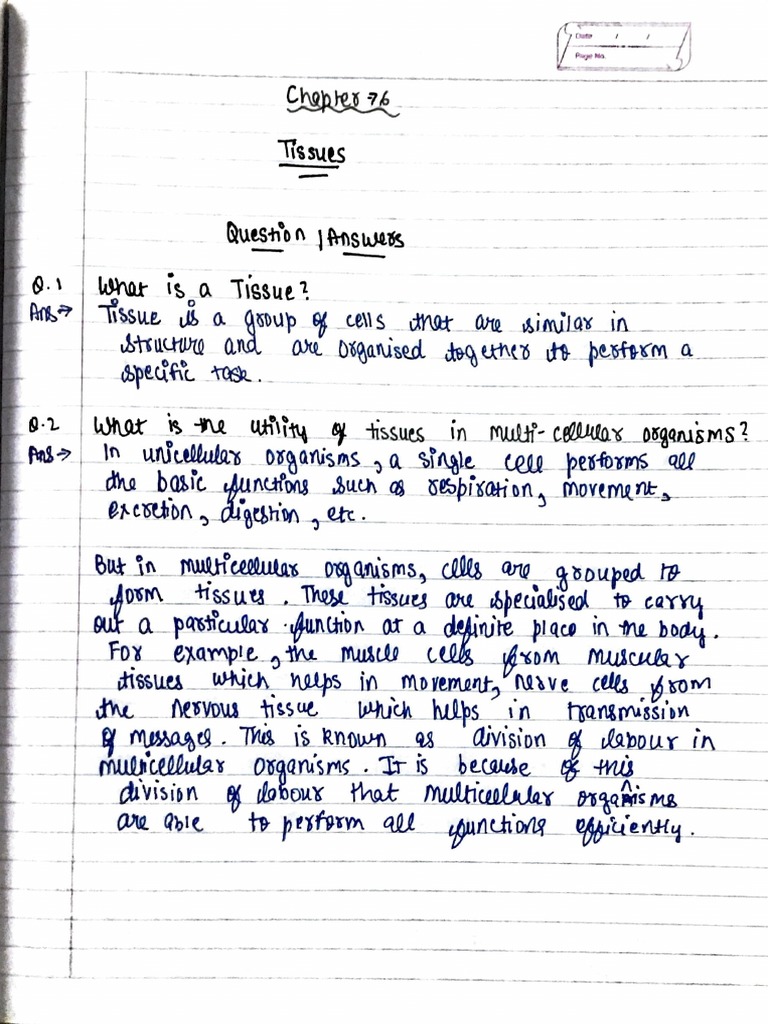 Date / /
Page No.
Chapter → 6
Tissues
Question / Answers
Q.1 What is a Tissue?
Ans → Tissue is a group of cells that are similar in
structure and are organised together to perform a
specific task.
Q.2 What is the utility of tissues in multi-cellular organisms?
Ans → In unicellular organisms, a single cell performs all
the basic functions such as respiration, movement,
excretion, digestion, etc.
But in multicellular organisms, cells are grouped to
form tissues. These tissues are specialised to carry
out a particular function at a definite place in the body.
For example, the muscle cells from muscular
tissues which helps in movement, nerve cells from
the nervous tissue which helps in transmission
of messages. This is known as division of labour in
multicellular organisms. It is because of this
division of labour that multicellular organisms
are able to perform all functions efficiently.